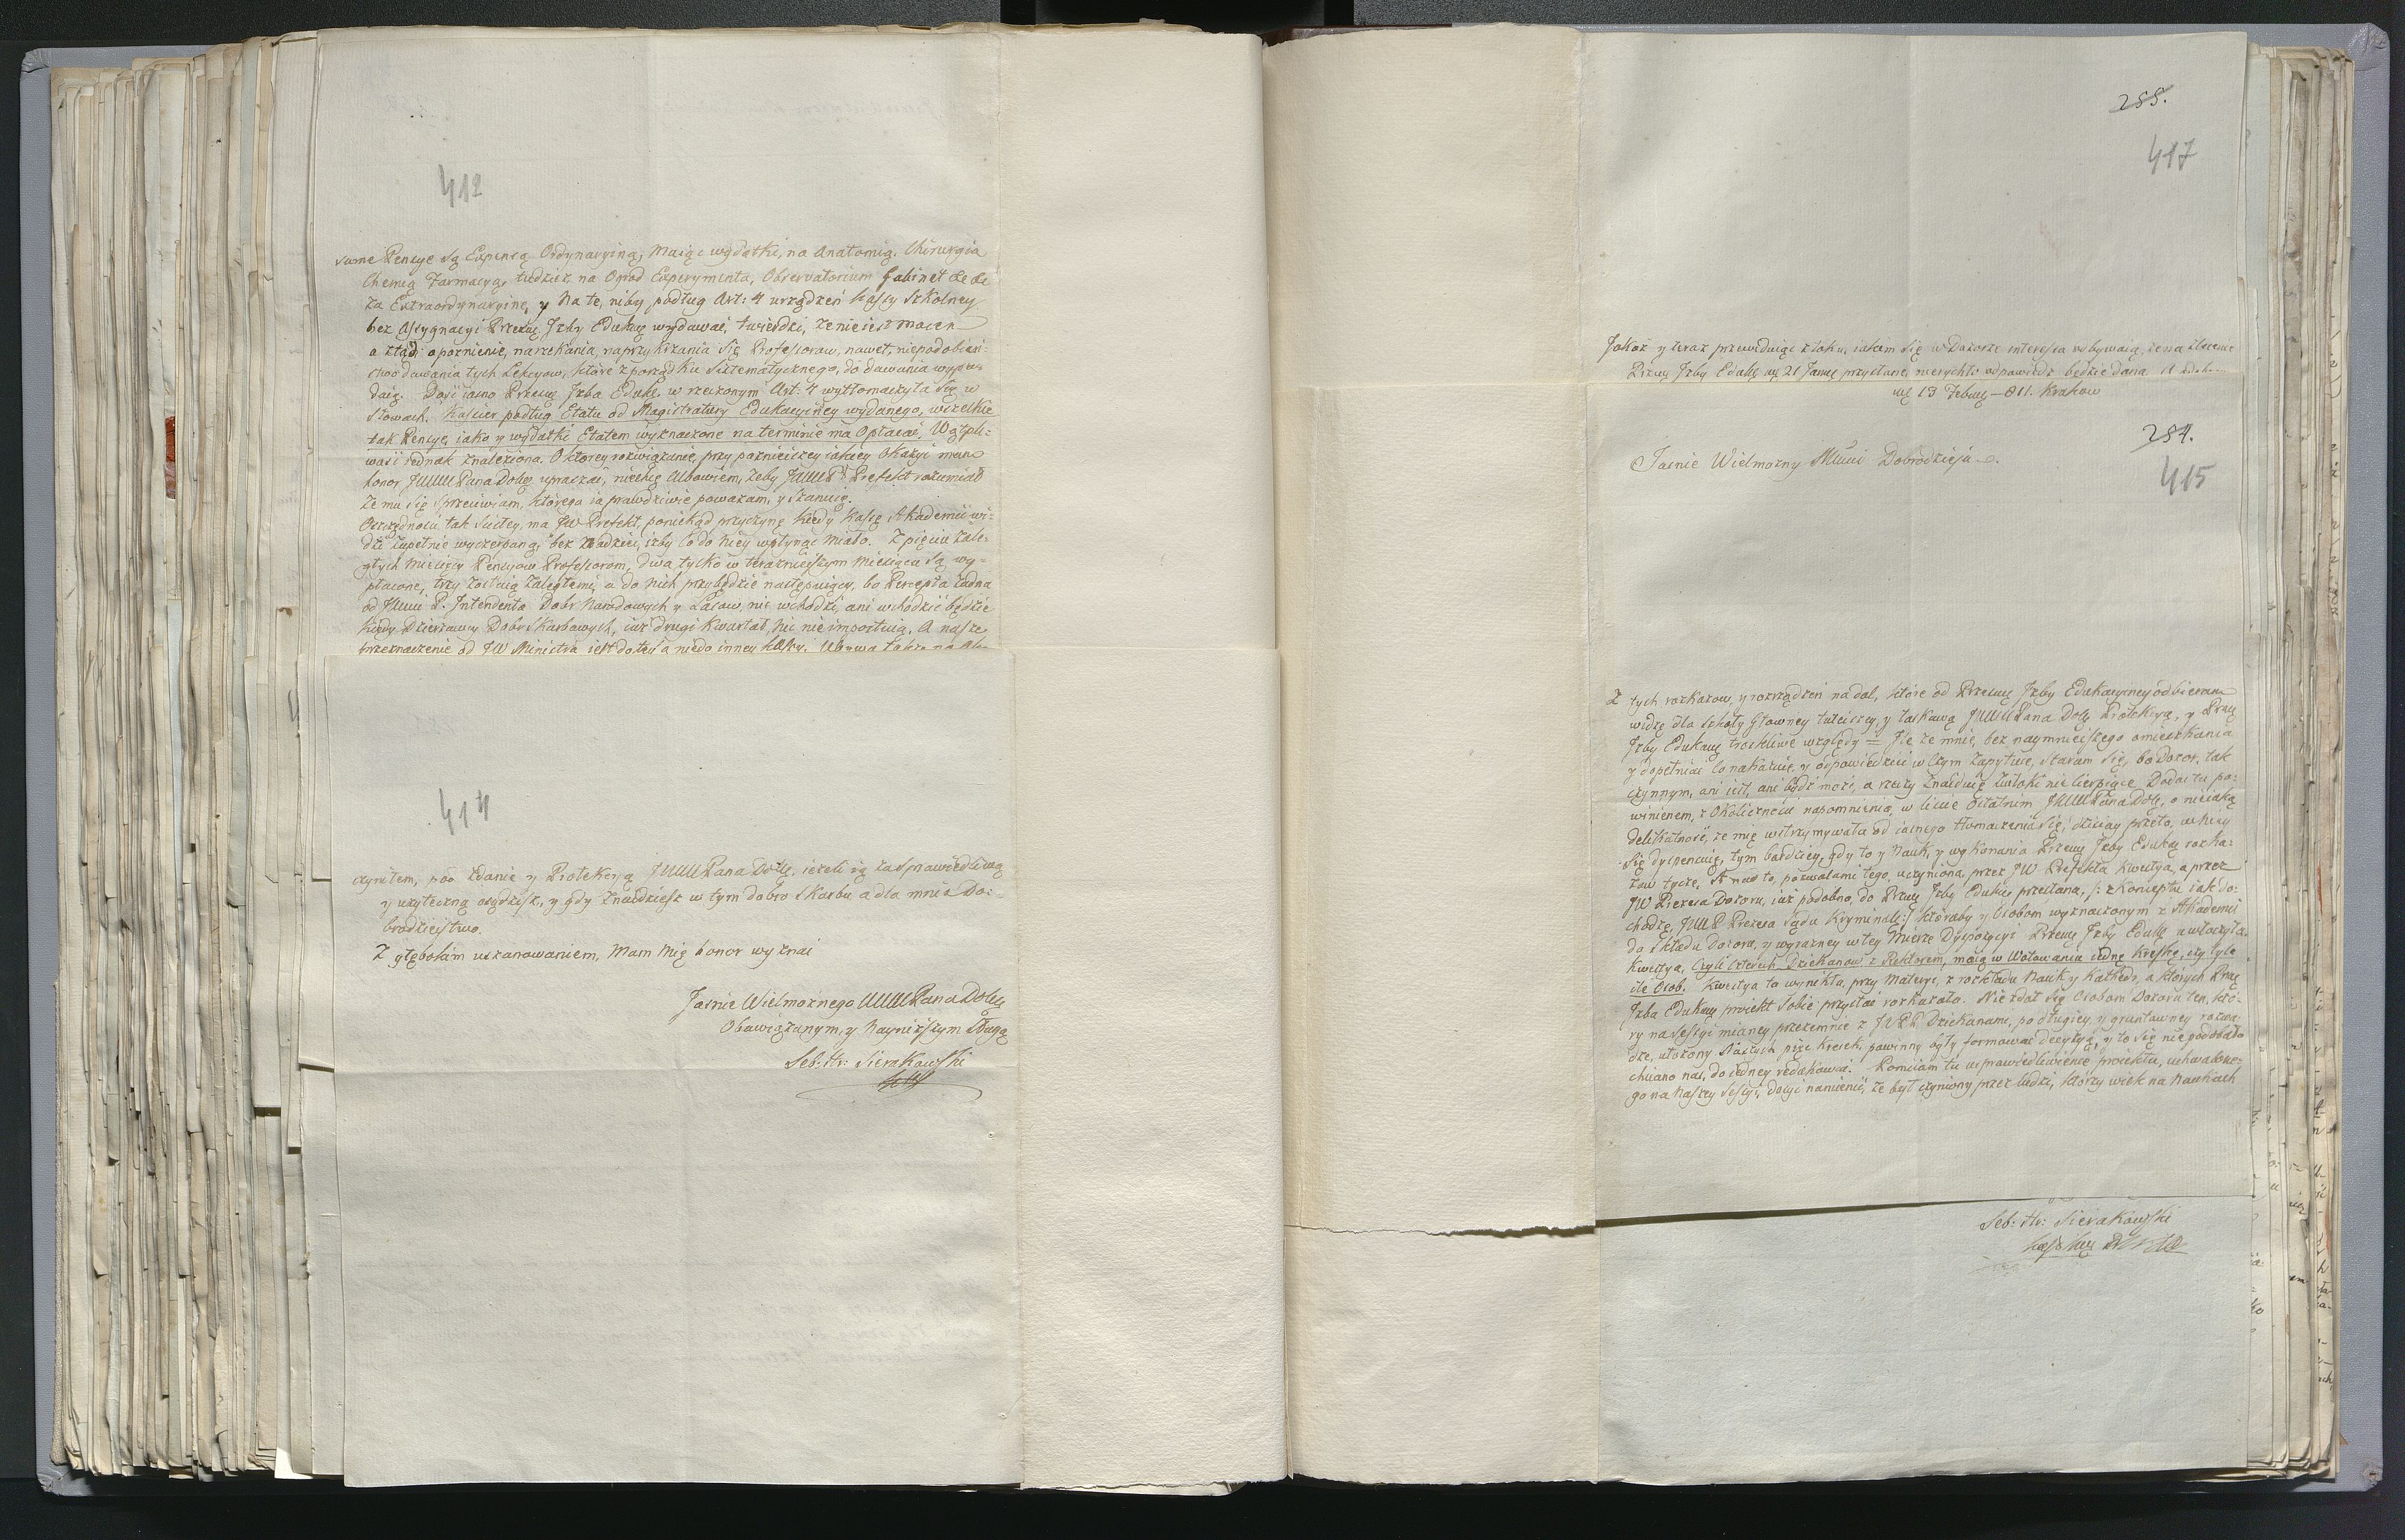 412
same Pensye są Expensą Ordynaryiną, Maiąc wydatki, na Anatomią, Chirurgia
Chemią Farmacyą, tudzież na Ogrod Experymenta, Observatorium Gabinet &c &c
za Extraordynaryine, y na te, niby podług Art: 4 urządzeń Kassy Szkolney
bez Assygnacyi Przeswę Izby Edukacę wydawać, twierdzi, że nie iest mocen
a ztąd opoznienie, narzekania, naprzykrzania się Professorow, nawet, niepodobień-
stwo dawania tych Lekcyow, które z porządku Sistematycznego, do dawania wypa-
daią. Dość iasno Przeswę Izba Eduk. w rzeczonym Art: 4 wytłomaczyła się w
Słowach. Kassier podług Etatu od Magistratury Edukacyiney wydanego, wszelkie
tak Pensye, iako y wydatki Etatem wyznaczone na terminie ma Opłacać, Wątpli-
wość iednak znaleziona. O ktorey rozwiązanie, przy poznieyszey iakiey Okazyi mam
honor JWWPana Dobę upraszać, niechcę Albowiem, żeby JWWPn Prefekt rozumiał
że mu się sprzeciwiam, którego ia prawdziwie poważam, y szanuię.
Oszczędności tak ścisłey, ma JW Prefekt, poniekąd przyczynę kiedy Kassę Akademii wi-
dzi zupełnie wyczerpaną, bez nadziei, iżby co do niey wpłynąć miało. Z pięciu zale-
głych Miesięcy Pensyow Professorom, dwa tylko w teraznieyszym Miesiącu są wy-
płacone, trzy zostaią zaległemi, a do nich przybędzie następuiący, bo Percepta żadna
od JWW P. Intendenta Dobr Narodowych y Lasow, nie wchodzi, ani wchodzić będzie
kiedy Dzierżawcy Dobr Skarbowych, iuż drugi Kwartał, nic nie importuią. A nasze
przeznaczenie od JW Ministra iest do tey a nie do inney Kassy.
414
czyniłem, pod zdanie y Protekcyą JWWPana Dobę, ieżeli ią za sprawiedliwą
y użyteczną osądzisz, y gdy znaydziesz w tym dobro Skarbu a dla mnie Do-
brodzieystwo.
Z głębokim uszanowaniem, Mam Mię honor wyznać
Jasnie Wielmożnego WWWPana Dobę
Obowiązanym, y Nayniższym Sługą
Seb: Hr: Sierakowski
255.
417
Jakoż y teraz przewiduiąc z toku, iakim się w Dozorze interessa odbywaią, że na zlecenie
Przeswę Izby Edukę wę 21 Januę przysłane, nierychło odpowiedź będzie dana
wę 19 Febuę – 811. Krakow
254.
415
Jasnie Wielmożny Mwci Dobrodzieju
Z tych rozkazow, y rozrządzeń nadal, które od Przeswę Izby Edukacyiney odbieram
widzę dla Szkoły Głowney tuteyszey, y łaskawą JWWPana Dobę Protekcyą, y Przeswę
Izby Edukacę troskliwe względy = Ile ze mnie, bez naymnieyszego omieszkania
y dopełniać co nakazuię, y odpowiedzieć w czym zapytuie, staram się, bo Dozor, tak
czynnym, ani iest, ani bydź może, a rzeczy znayduię zwłoki nie cierpiące. Dodać tu po-
winienem, z Okoliczności napomnienia, w liście ostatnim JWWPana Dobę, o nieiaką
delikatność, że mię wstrzymywała od iasnego tłomaczenia się, dzisiay przeto, w niey
się dyspensuię, tym bardziey, gdy to y Nauk, y wykonania Przeswę Izby Edukę rozka-
zow tycze. A nad to, pozwolami tego, uczyniona, przez JW Prefekta Kwestya, a przez
JW Prezesa Dozoru, iuż podobno, do Przeswę Izby Edukę przesłana, /: z Konceptu iak do-
chodzę, JWW Prezesa Sądu Kryminalę:/ któraby y Osobom wyznaczonym z Akademii
do składu Dozoru, y wyrazney w tey mierze Dyspozycyi Przeswę Izby Edukę uwłaczyła.
Kwestya, Czyli Czterech Dziekanow z Rektorem, maią w Wotowaniu iednę Kreskę, czy tyle
ile Osob. Kwestya ta wynikła, przy Materyi, z rozkładu Nauk y Kathedr, a ktorych Przę
Izba Edukacę proiekt sobie przysłać rozkazała. Nie zdał się Osobom Dozoru ten, któ-
ry na Sessyi mianey przezemnie z JWPP Dziekanami, po długiey, y gruntowney rozwa-
dze, ułożony został pięć Kresek, powinny były formować decyzyą, y to się nie podobało
chciano nas, do iedney redukować. Pomiiam tu usprawiedliwienie proiektu, uchwalone-
go na naszey Sessyi, dosyć namienić, że był czyniony przez ludzi, którzy wiek na Naukach
Seb: Hr: Sierakowski